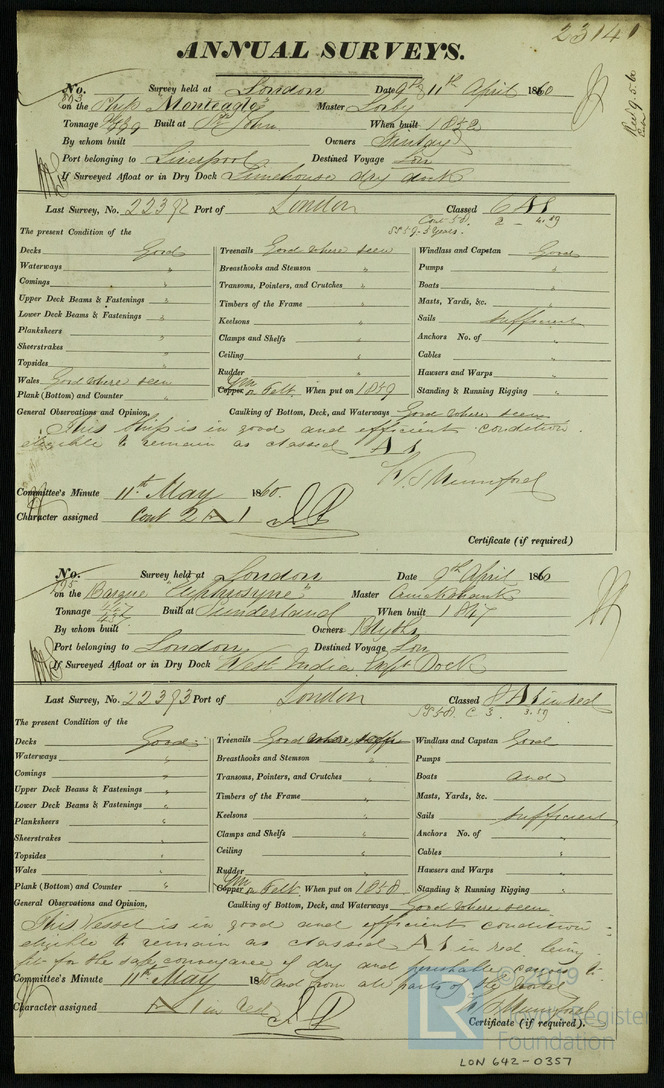 23141
ANNUAL SURVEYS.
Recd 9.5.60
No. 893 Survey held at London Date 9th, 11th April 1860
on the Ship "Monteagle" Master
Tonnage Built at St John When built 1852
By whom built Owners Finlay
Port belonging to Liverpool Destined Voyage Lon
If Surveyed Afloat or in Dry Dock Limehouse dry dock
Last Survey, No. 22392 Port of London Classed 6 A1
Cont 58. 2 - 4.59
SS 59. 3 years.
The present Condition of the
Decks Good Treenails Good where seen Windlass and Capstan Good
Waterways " Breasthooks and Stemson " Pumps "
Comings " Transoms, Pointers, and Crutches " Boats "
Upper Deck Beams & Fastenings " Timbers of the Frame " Masts, Yards, &c. "
Lower Deck Beams & Fastenings " Keelsons " Sails sufficient
Planksheers " Clamps and Shelfs " Anchors No. of "
Sheerstrakes " Ceiling " Cables "
Topsides " Rudder " Hawsers and Warps "
Wales Good where seen Copper YM on Felt. When put on 1859 Standing & Running Rigging "
Plank (Bottom) and Counter "
General Observations and Opinion, Caulking of Bottom, Deck, and Waterways Good where seen
This ship is in good and efficient condition.
eligible to remain as classed A1
W. J. Mumford
Committee's Minute 11th May 1860.
Character assigned Cont 2 A 1
Certificate (if required)
No. 895 Survey held at London Date 9th April 1860
on the Barque "Euphrosyne" Master Cruickshank
Tonnage Built at Sunderland When built 1847
By whom built Owners Blyths
Port belonging to London Destined Voyage Lon
If Surveyed Afloat or in Dry Dock West India Expt Dock
Last Survey, No. 22393 Port of London Classed A1 in red
SS 58. C 3. 3.59
The present Condition of the
Decks Good Treenails Good where Windlass and Capstan Good
Waterways " Breasthooks and Stemson " Pumps
Comings " Transoms, Pointers, and Crutches " Boats and
Upper Deck Beams & Fastenings " Timbers of the Frame " Masts, Yards, &c.
Lower Deck Beams & Fastenings " Keelsons " Sails sufficient
Planksheers " Clamps and Shelfs " Anchors No. of "
Sheerstrakes " Ceiling " Cables "
Topsides " Rudder " Hawsers and Warps "
Wales " Copper YM on Felt. When put on 1858 Standing & Running Rigging "
Plank (Bottom) and Counter "
General Observations and Opinion, Caulking of Bottom, Deck, and Waterways Good where seen
This Vessel is in good and efficient condition
eligible to remain as classed A1 in red being
fit for the safe conveyance of dry and perishable cargoes to
and from all parts of the world
Committee's Minute 11th May 1860
W. J. Mumford
Character assigned A 1 in red
Certificate (if required).
© 2019
LR
Lloyd's Register
Foundation
LON 642-0357